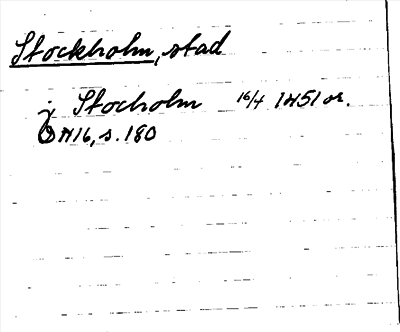 Stockholm, stad
j Stocholm 16/4 1451 or.
ÖN16, s. 180